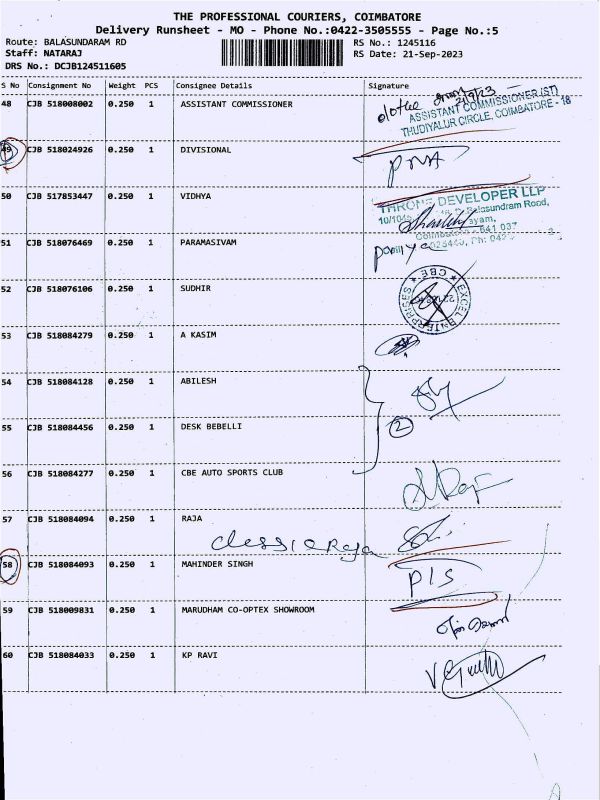 THE PROFESSIONAL COURIERS, COIMBATORE
Delivery Runsheet - MO - Phone No.:0422-3505555 - Page No.:5
Route: BALASUNDARAM RD RS No.: 1245116
Staff: NATARAJ RS Date: 21-Sep-2023
DRS No.: DCJB124511605
S No Consignment No Weight PCS Consignee Details Signature
48 CJB 518008002 0.250 1 ASSISTANT COMMISSIONER
ASSISTANT COMMISSIONER (ST)
THUDIYALUR CIRCLE, COIMBATORE - 18
49 CJB 518024926 0.250 1 DIVISIONAL
50 CJB 517853447 0.250 1 VIDHYA
DEVELOPER LLP
Balasundram Road,
641 037
51 CJB 518076469 0.250 1 PARAMASIVAM
52 CJB 518076106 0.250 1 SUDHIR
EXCEL ENTERPRISES * CBE *
53 CJB 518084279 0.250 1 A KASIM
54 CJB 518084128 0.250 1 ABILESH
55 CJB 518084456 0.250 1 DESK BEBELLI
2
56 CJB 518084277 0.250 1 CBE AUTO SPORTS CLUB
57 CJB 518084094 0.250 1 RAJA
58 CJB 518084093 0.250 1 MAHINDER SINGH
P/S
59 CJB 518009831 0.250 1 MARUDHAM CO-OPTEX SHOWROOM
60 CJB 518084033 0.250 1 KP RAVI